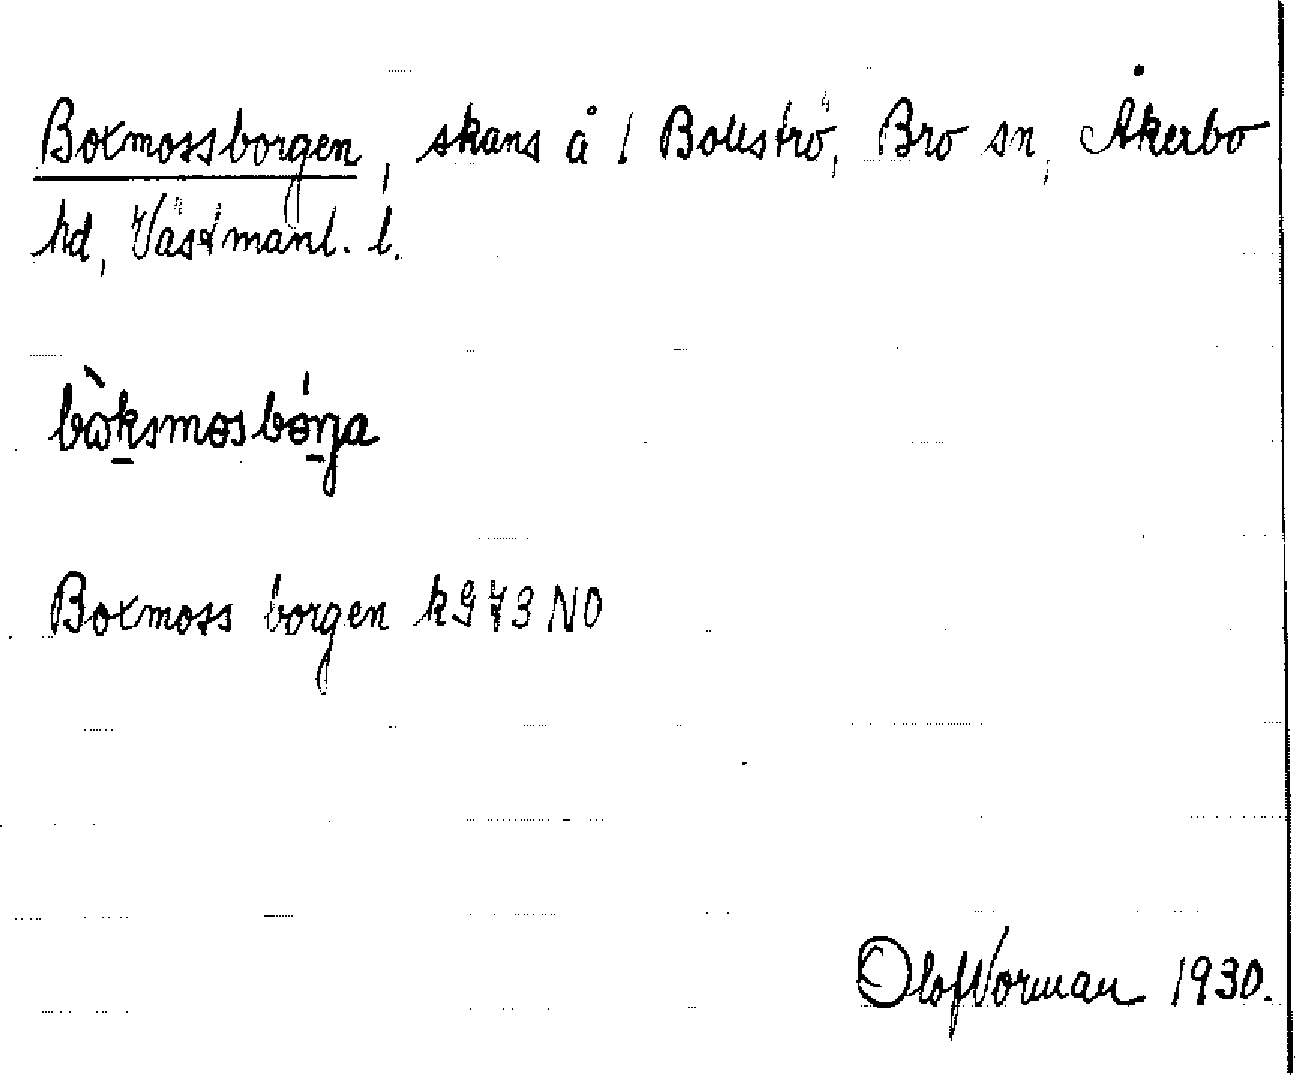 Boxmossborgen, skans å 1 Bollströ, Bro sn, Åkerbo
hd, Västmanl. l.
bòksmosbórja
Boxmoss borgen k973 NO
Olof Norman 1930.